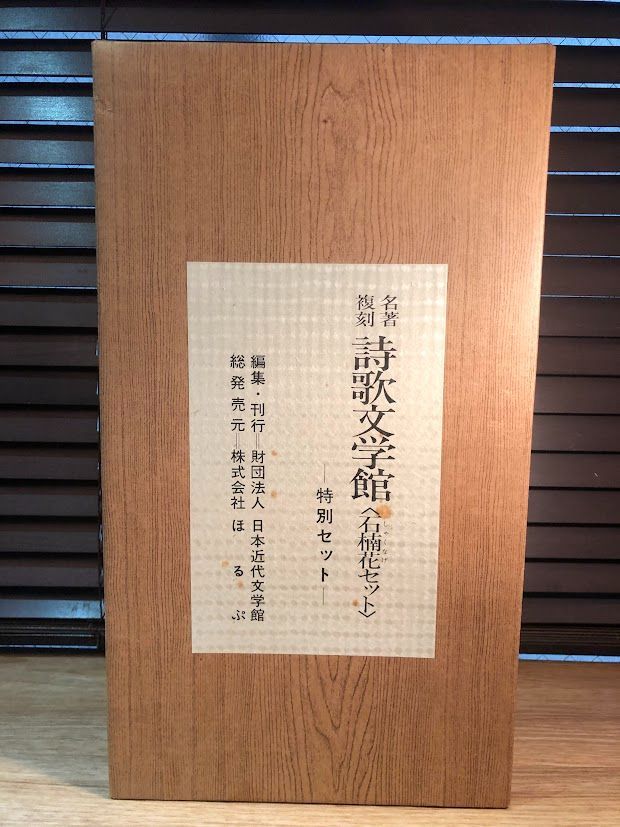 名著複刻 詩歌文学館〈石楠花セット〉
しゃくなげ
―特別セット―
編集・刊行=財団法人 日本近代文学館
総発売元=株式会社 ほるぷ